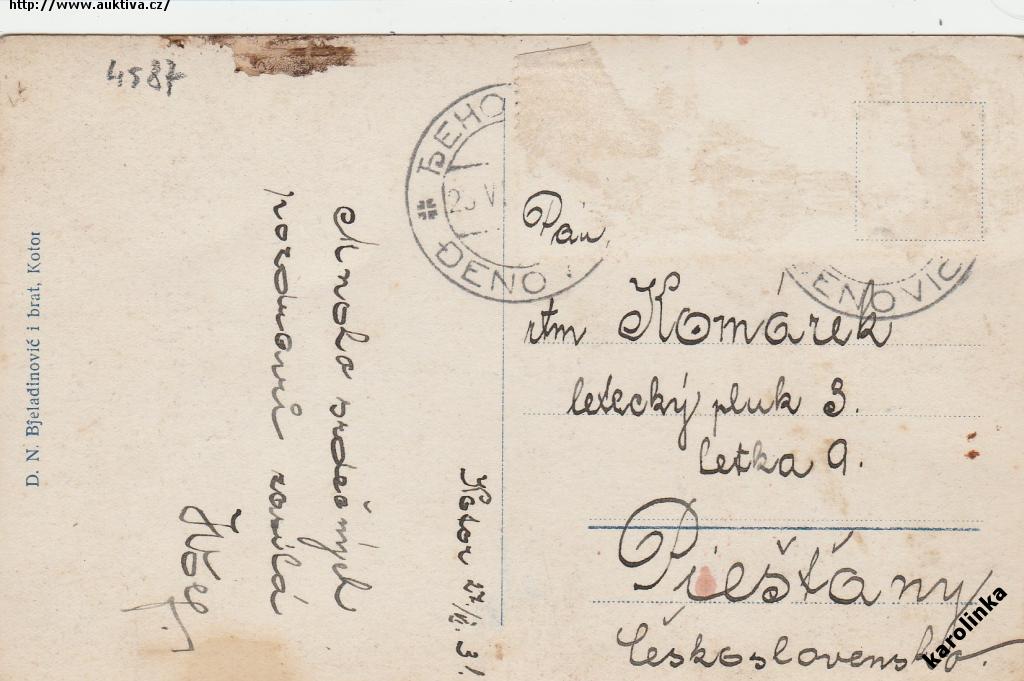 http://www.auktiva.cz/
4587
D. N. Bjeladinović i brat, Kotor
ЂЕНО
25 V
ĐENO
ENOVIĆ
Mnoho srdečných
pozdravů zasílá
Kotor 27/VI. 31.
Pán
rtm Komárek
letecký pluk 3.
letka 9.
Piešťany
Československo.
karolinka